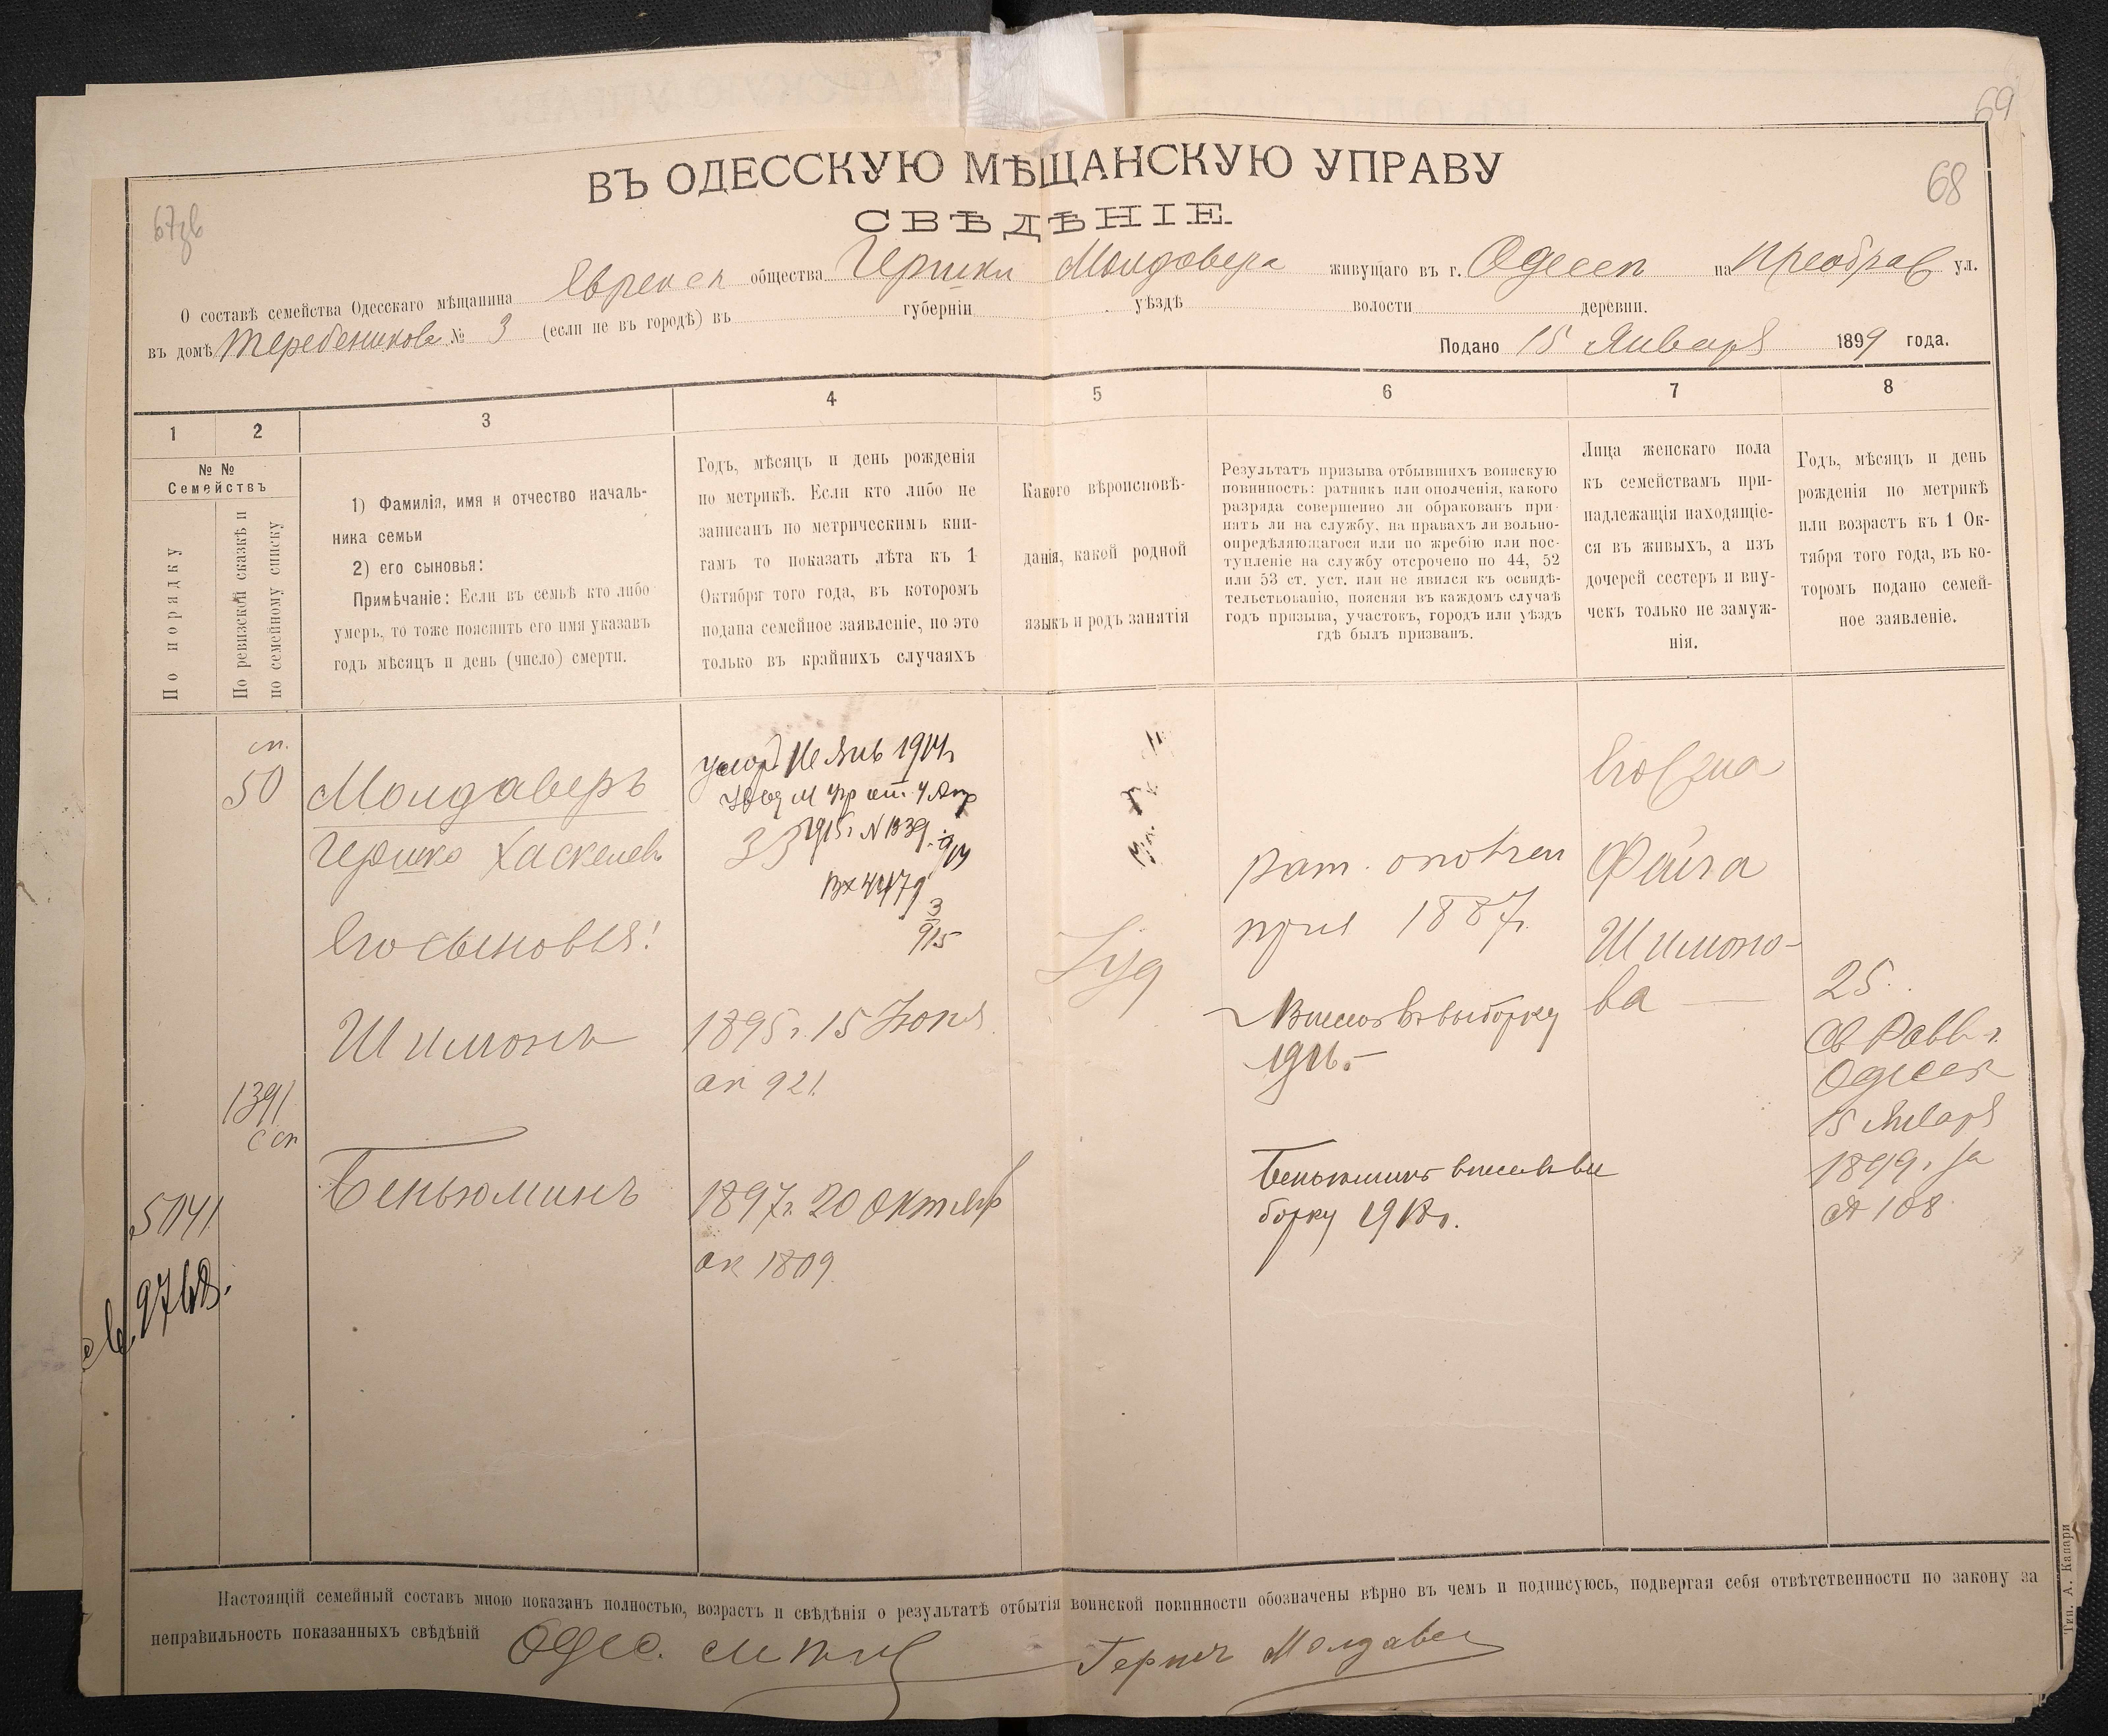 69
68
ВЪ ОДЕССКУЮ МѢЩАНСКУЮ УПРАВУ
СВѢДѢНІЕ.
О составѣ семейства Одесскаго мѣщанина Еврейск общества Гершки Молдавера живущаго въ г. Одессѣ на Преображ ул.
въ домѣ Теребеникова № 3 (если не въ городѣ) въ губерніи уѣздѣ волости деревни.
Подано 15 Января 1899 года.
1 2 3 4 5 6 7 8
№ №
Семействъ
По порядку
По ревизской сказкѣ и
по семейному списку
1) Фамилія, имя и отчество началь-
ника семьи
2) его сыновья:
Примѣчаніе: Если въ семьѣ кто либо
умеръ, то тоже пояснить его имя указавъ
годъ мѣсяцъ и день (число) смерти.
Годъ, мѣсяцъ и день рожденія
по метрикѣ. Если кто либо не
записанъ по метрическимъ кни-
гамъ то показать лѣта къ 1
Октября того года, въ которомъ
подана семейное заявленіе, но это
только въ крайнихъ случаяхъ
Какого вѣроисповѣ-
данія, какой родной
языкъ и родъ занятія
Результатъ призыва отбывшихъ воинскую
повинность: ратникъ или ополченія, какого
разряда совершенно ли обракованъ при-
нятъ ли на службу, на правахъ ли вольно-
опредѣляющагося или по жребію или пос-
тупленіе на службу отсрочено по 44, 52
или 53 ст. уст. или не явился къ освидѣ-
тельствованію, поясняя въ каждомъ случаѣ
годъ призыва, участокъ, городъ или уѣздъ
гдѣ былъ призванъ.
Лица женскаго пола
къ семействамъ при-
надлежащія находящіе-
ся въ живыхъ, а изъ
дочерей сестеръ и вну-
чекъ только не замуж-
нія.
Годъ, мѣсяцъ и день
рожденія по метрикѣ
или возрастъ къ 1 Ок-
тября того года, въ ко-
торомъ подано семей-
ное заявленіе.
сп.
50
1391
5041
Молдаверъ
Гершко Хаскелевъ
Его сыновья:
Шимонъ
Беньюминъ
33
3
915
1895 г. 15 Іюня
ак 921.
1897 г. 20 Октяб
ак 1809.
Іуд
рат. ополчен
приз 1887 г.
Внесенъ въ выборку
1916.
Беньюминъ внесенъ въ вы
борку 1918 г.
Его жена
Файга
Шимоно-
ва
25.
Св Равв. г.
Одессы
15 Января
1899 г. за
№ 108
Настоящій семейный составъ мною показанъ полностью, возрастъ и свѣдѣнія о результатѣ отбытія воинской повинности обозначены вѣрно въ чемъ и подписуюсь, подвергая себя отвѣтственности по закону за
неправильность показанныхъ свѣдѣній Одес. Герш Молдавер
Тип. А. Канари